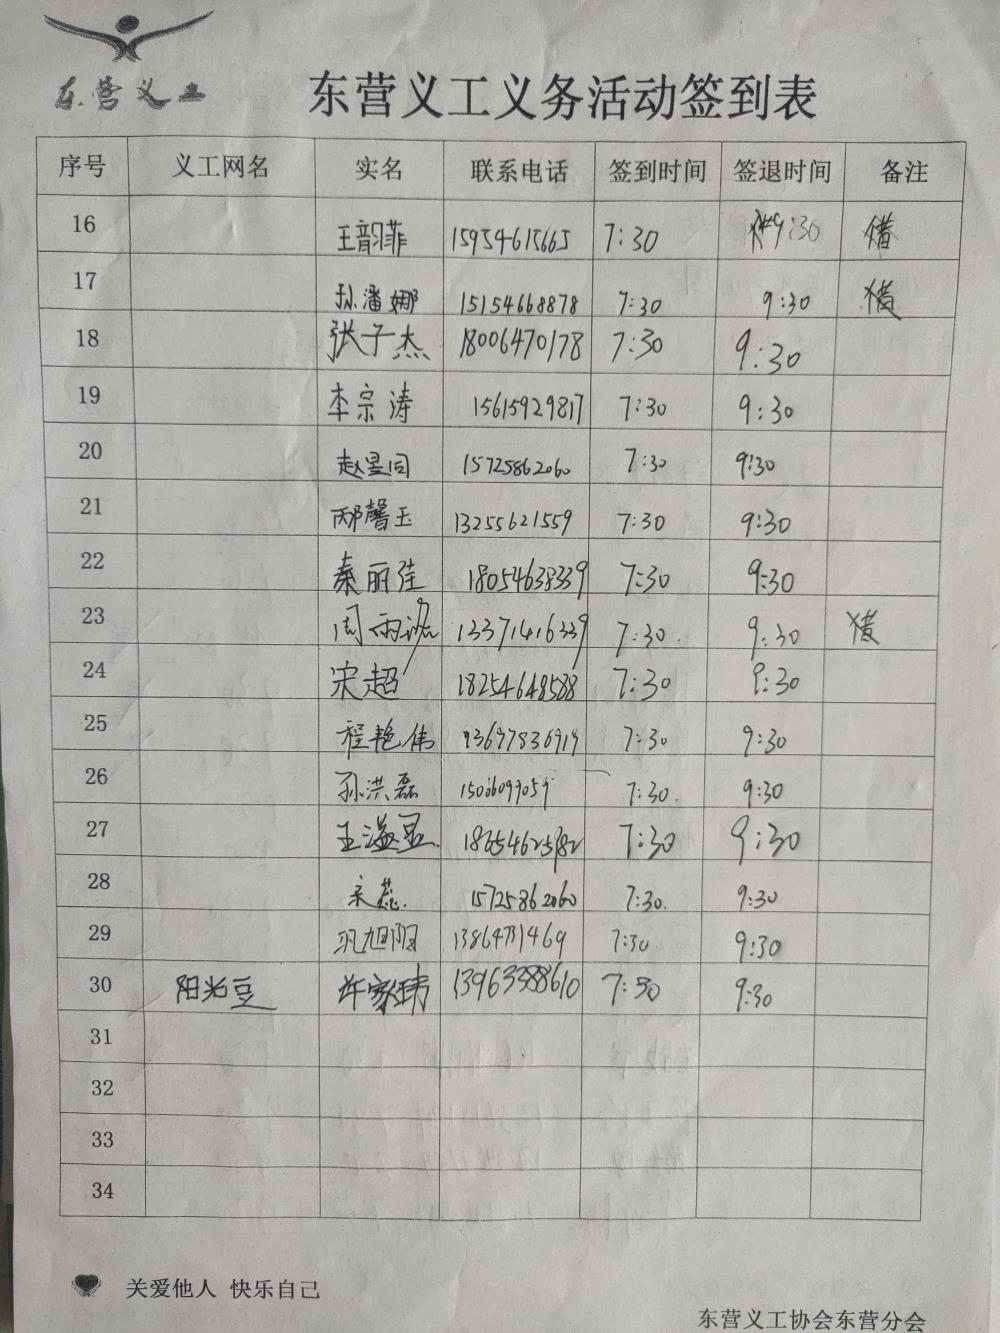 东营义工
东营义工义务活动签到表
序号 义工网名 实名 联系电话 签到时间 签退时间 备注
16 王韵菲 15954615665 7:30 9:30 借
17 孙潘娜 15154668878 7:30 9:30
18 张子杰 18006470178 7:30 9:30
19 李宗涛 15615929817 7:30 9:30
20 赵昱同 15725862060 7:30 9:30
21 邴馨玉 13255621559 7:30 9:30
22 秦丽佳 18054638339 7:30 9:30
23 周雨诺 13371416339 7:30 9:30
24 宋超 18254648588 7:30 9:30
25 程艳伟 13697836919 7:30 9:30
26 孙洪磊 7:30 9:30
27 王溢 7:30 9:30
28 宋蕊 15725862060 7:30 9:30
29 巩旭阳 13864731469 7:30 9:30
30 阳光豆 许家玮 13963388610 7:30 9:30
31
32
33
34
关爱他人 快乐自己
东营义工协会东营分会